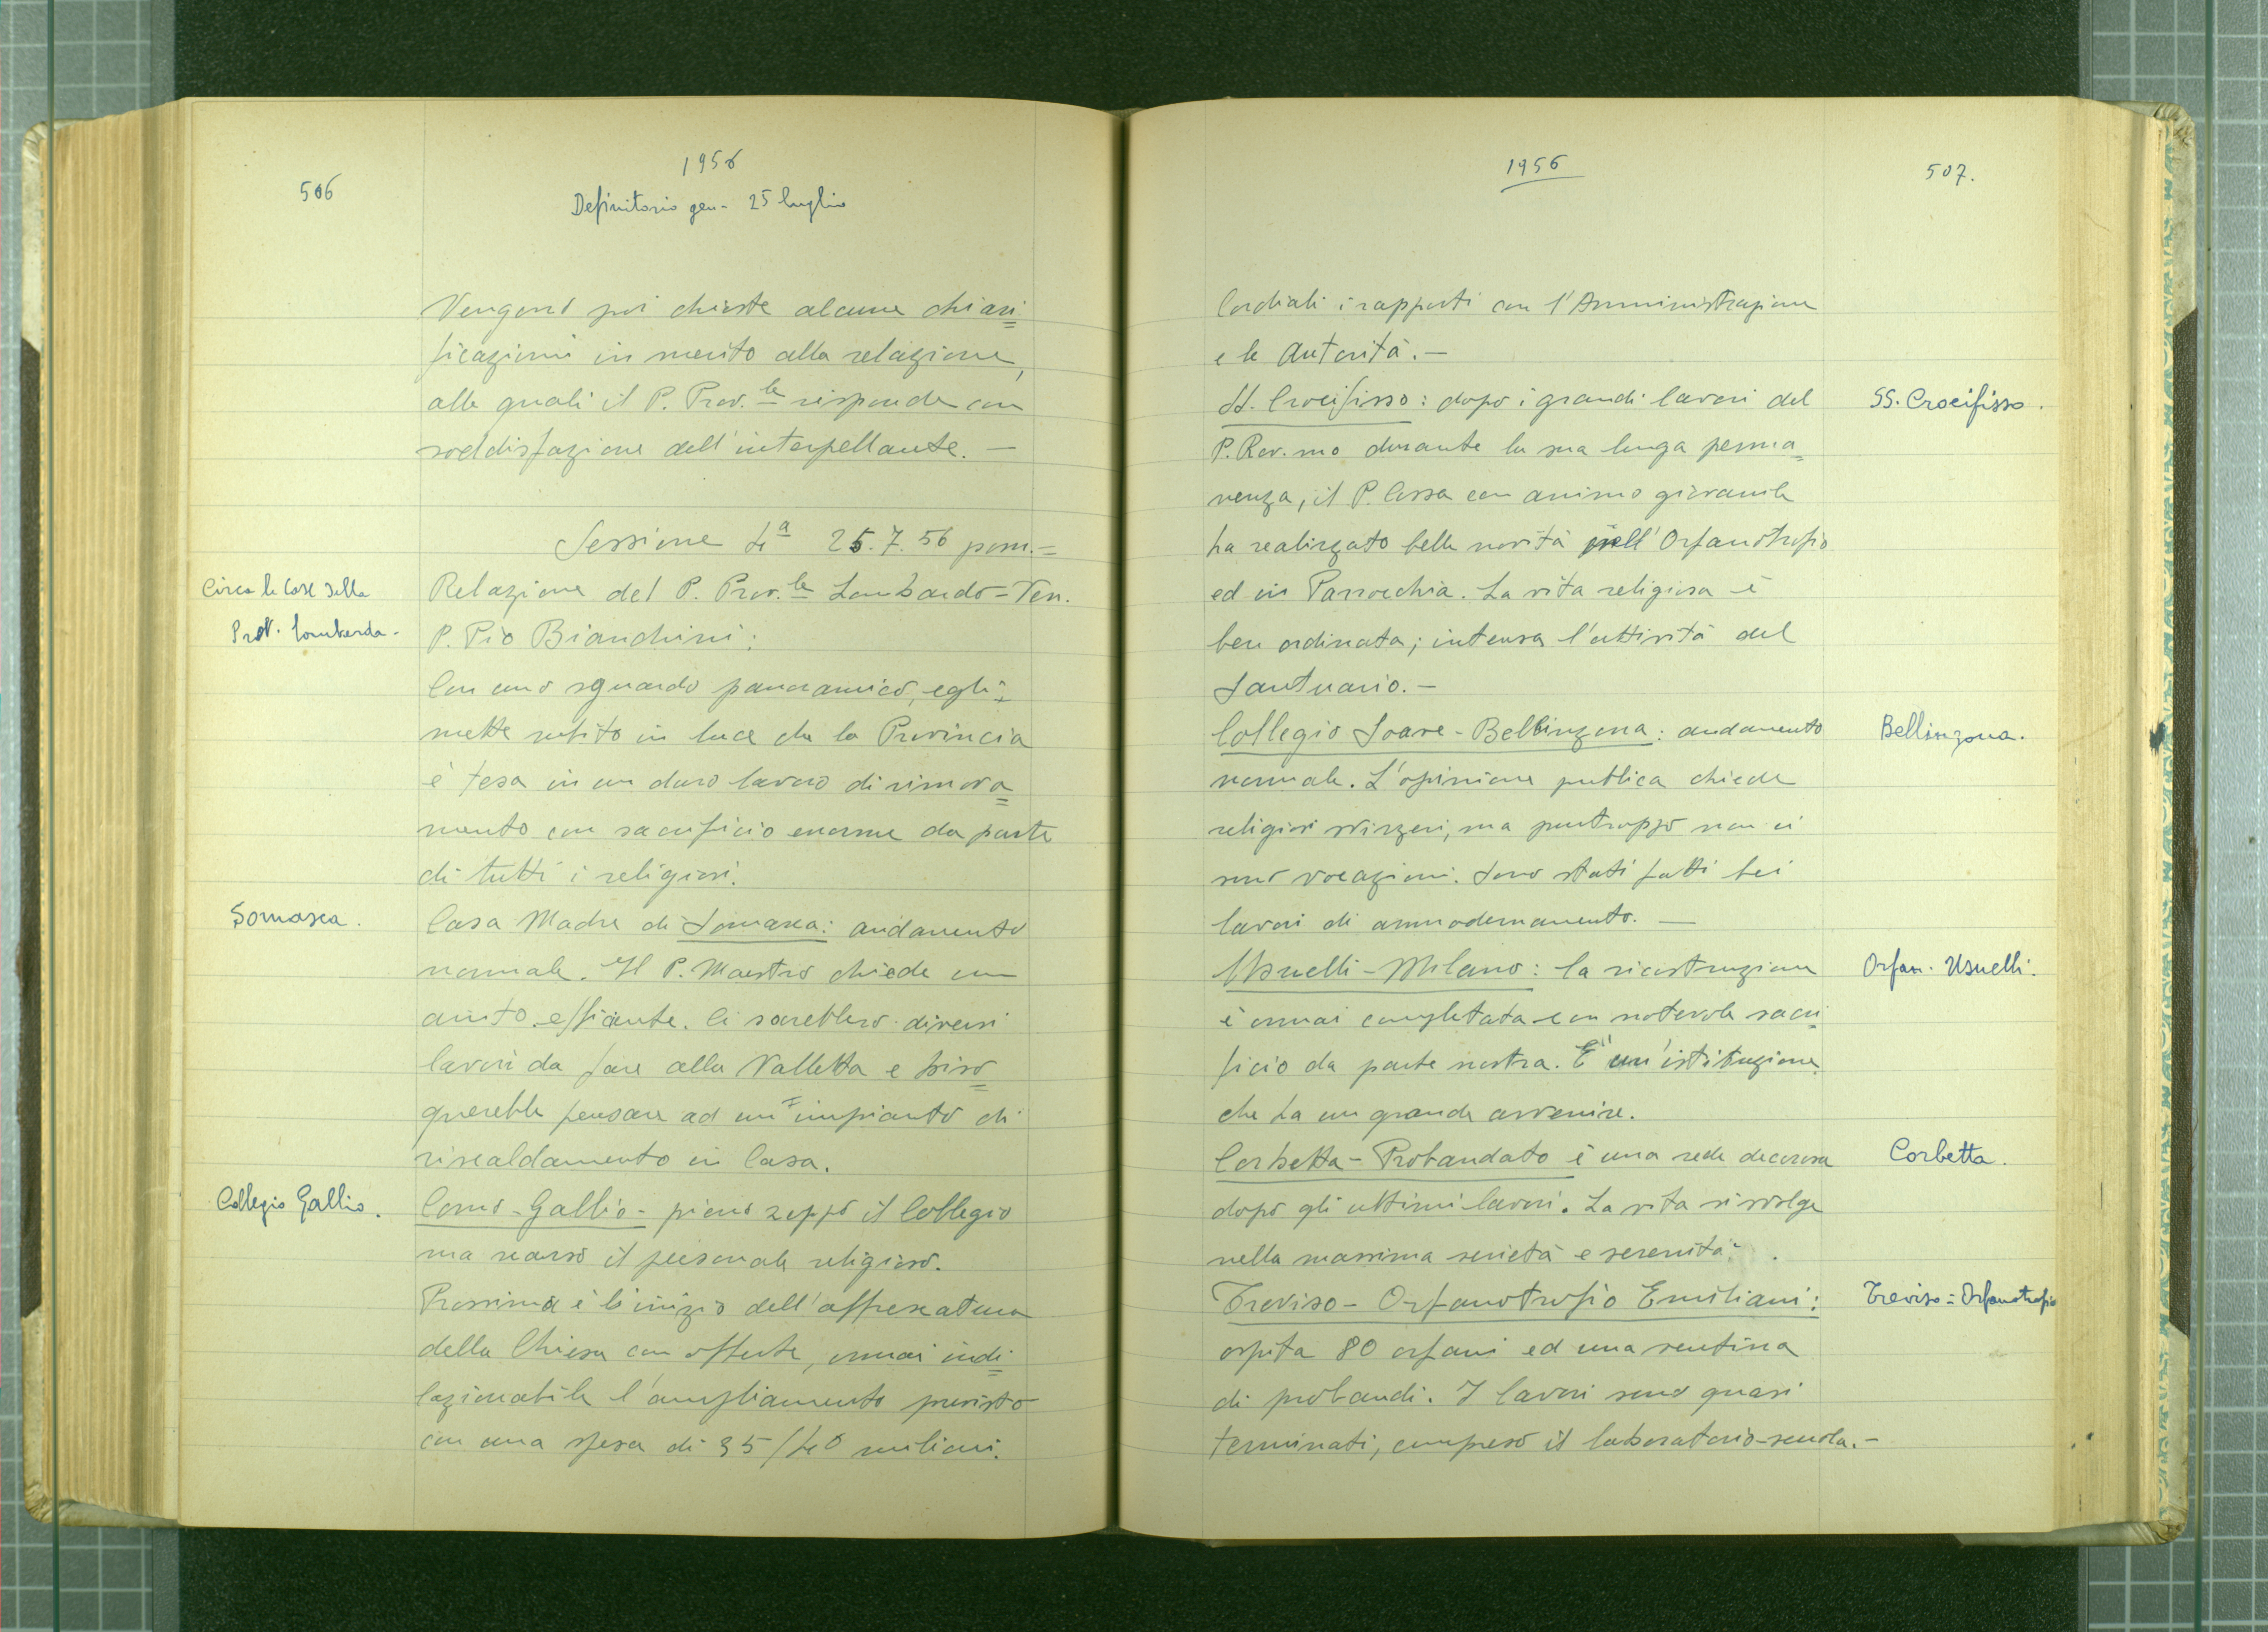 506
1956
Definitorio gen- 25 luglio
Vengono poi chieste alcune chiari=
ficazioni in merito alla relazione,
alle quali il P. Prov.le risponde con
soddisfazione dell'interpellante. —
Sessione 4a 25.7.56 pom.=
Circa le Case della
Prov. lombarda-
Relazione del P. Prov.le Lombardo=Ven.
P. Pio Bianchini:
Con uno sguardo panoramico, egli
mette subito in luce che la Provincia
è tesa in un duro lavoro di rinnova=
mento con sacrificio enorme da parte
di tutti i religiosi.
Somasca.
Casa Madre di Somasca: andamento
normale. Il P. Maestro chiede un
aiuto efficiente. Ci sarebbero diversi
lavori da fare alla Valletta e biso=
gnerebbe pensare ad un impianto di
riscaldamento in Casa.
Collegio Gallio.
Como-Gallio- pieno zeppo il Collegio
ma scarso il personale religioso.
Prossimo è l'inizio dell'affrescatura
della Chiesa con offerte, ormai indi=
lazionabile l'ampliamento previsto
con una spesa di 35/40 milioni.
1956
507.
Cordiali i rapporti con l'Amministrazione
e le Autorità.—
SS. Crocifisso: dopo i grandi lavori del
SS. Crocifisso.
P. Rev.mo durante la sua lunga perma=
nenza, il P. Cossa con animo giovanile
ha realizzato belle novità nell'Orfanotrofio
ed in Parrocchia. La vita religiosa è
ben ordinata; intensa l'attività del
Santuario.—
Collegio Soave-Bellinzona: andamento
Bellinzona.
normale. L'opinione pubblica chiede
religiosi svizzeri, ma purtroppo non ci
sono vocazioni. Sono stati fatti bei
lavori di ammodernamento. —
Usuelli-Milano: la ricostruzione
Orfan. Usuelli.
è ormai completata con notevole sacri=
ficio da parte nostra. E' un'istituzione
che ha un grande avvenire.
Corbetta-Probandato è una sede decorosa
Corbetta.
dopo gli ultimi lavori. La vita si svolge
nella massima serietà e serenità.
Treviso- Orfanotrofio Emiliani:
Treviso=Orfanotrofio
ospita 80 orfani ed una ventina
di probandi. I lavori sono quasi
terminati, compreso il laboratorio-scuola.-